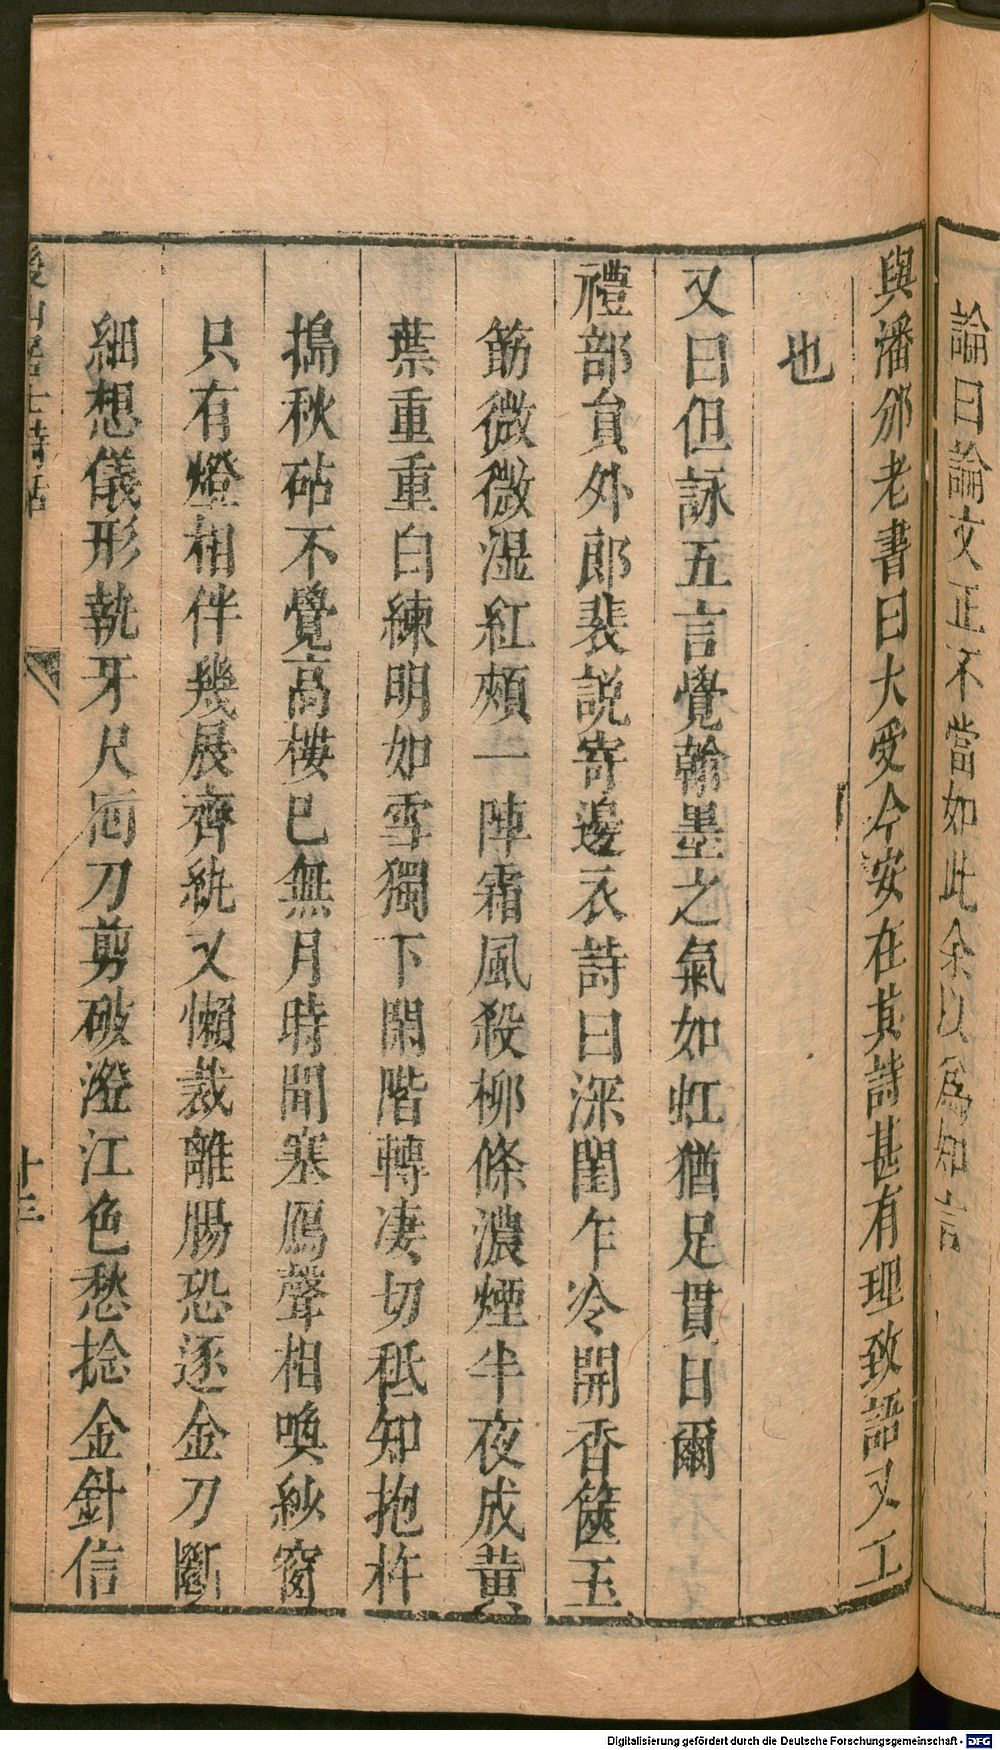 論曰論文正不當如此余以爲知言
與潘邠老書曰大受今安在其詩甚有理致語又工
也
又曰但詠五言覺翰墨之氣如虹猶足貫日爾
禮部員外郎裴説寄邊衣詩曰深閨乍冷開香篋玉
筯微微湿紅頰一陣霜風殺柳條濃煙半夜成黄
葉重重白練明如雪獨下閑階轉凄切秪知抱杵
搗秋砧不覺高樓已無月時聞塞鴈聲相喚紗窗
只有燈相伴幾展齊紈又懶裁離腸恐逐金刀斷
細想儀形執牙尺廻刀剪破澄江色愁捻金針信
後山居士詩話
十三
Digitalisierung gefördert durch die Deutsche Forschungsgemeinschaft - DFG